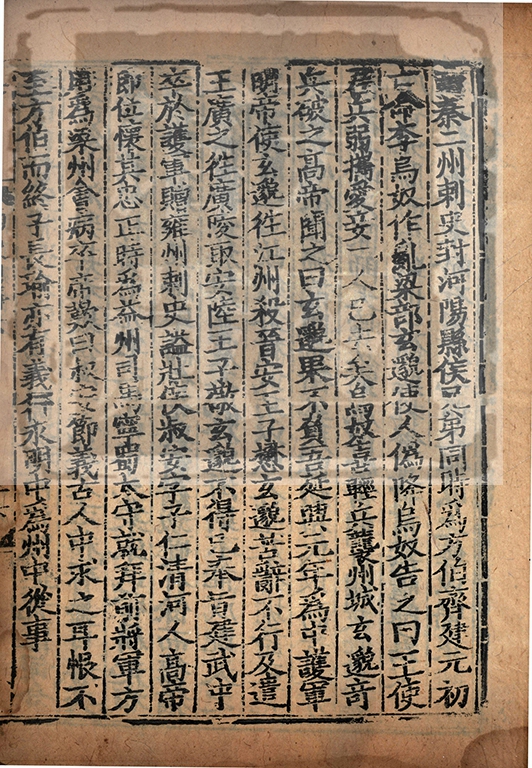 秦二州刺史封河陽縣侯兄弟同時為方伯齊建元初
亡命李烏奴作亂梁部玄邈使人偽降烏奴告之曰王使
君兵弱攜愛妾二人已去矣烏奴喜輕兵襲州城玄邈奇
兵破之高帝聞之曰玄邈果不負吾延興元年為中護軍
明帝使玄邈往江州殺晉安王子懋玄邈苦辭不行及遣
王廣之往廣陵取安陸王子敬玄邈不得已奉旨建武中
卒於護軍贈雍州刺史謚壯侯叔安字子仁清河人高帝
即位懷其忠正時為益州司馬寧蜀太守就拜前將軍方
用為梁州會病卒帝歎曰叔安節義古人中求之耳恨不
至方伯而終子長瑜亦有義行永明中為州中從事